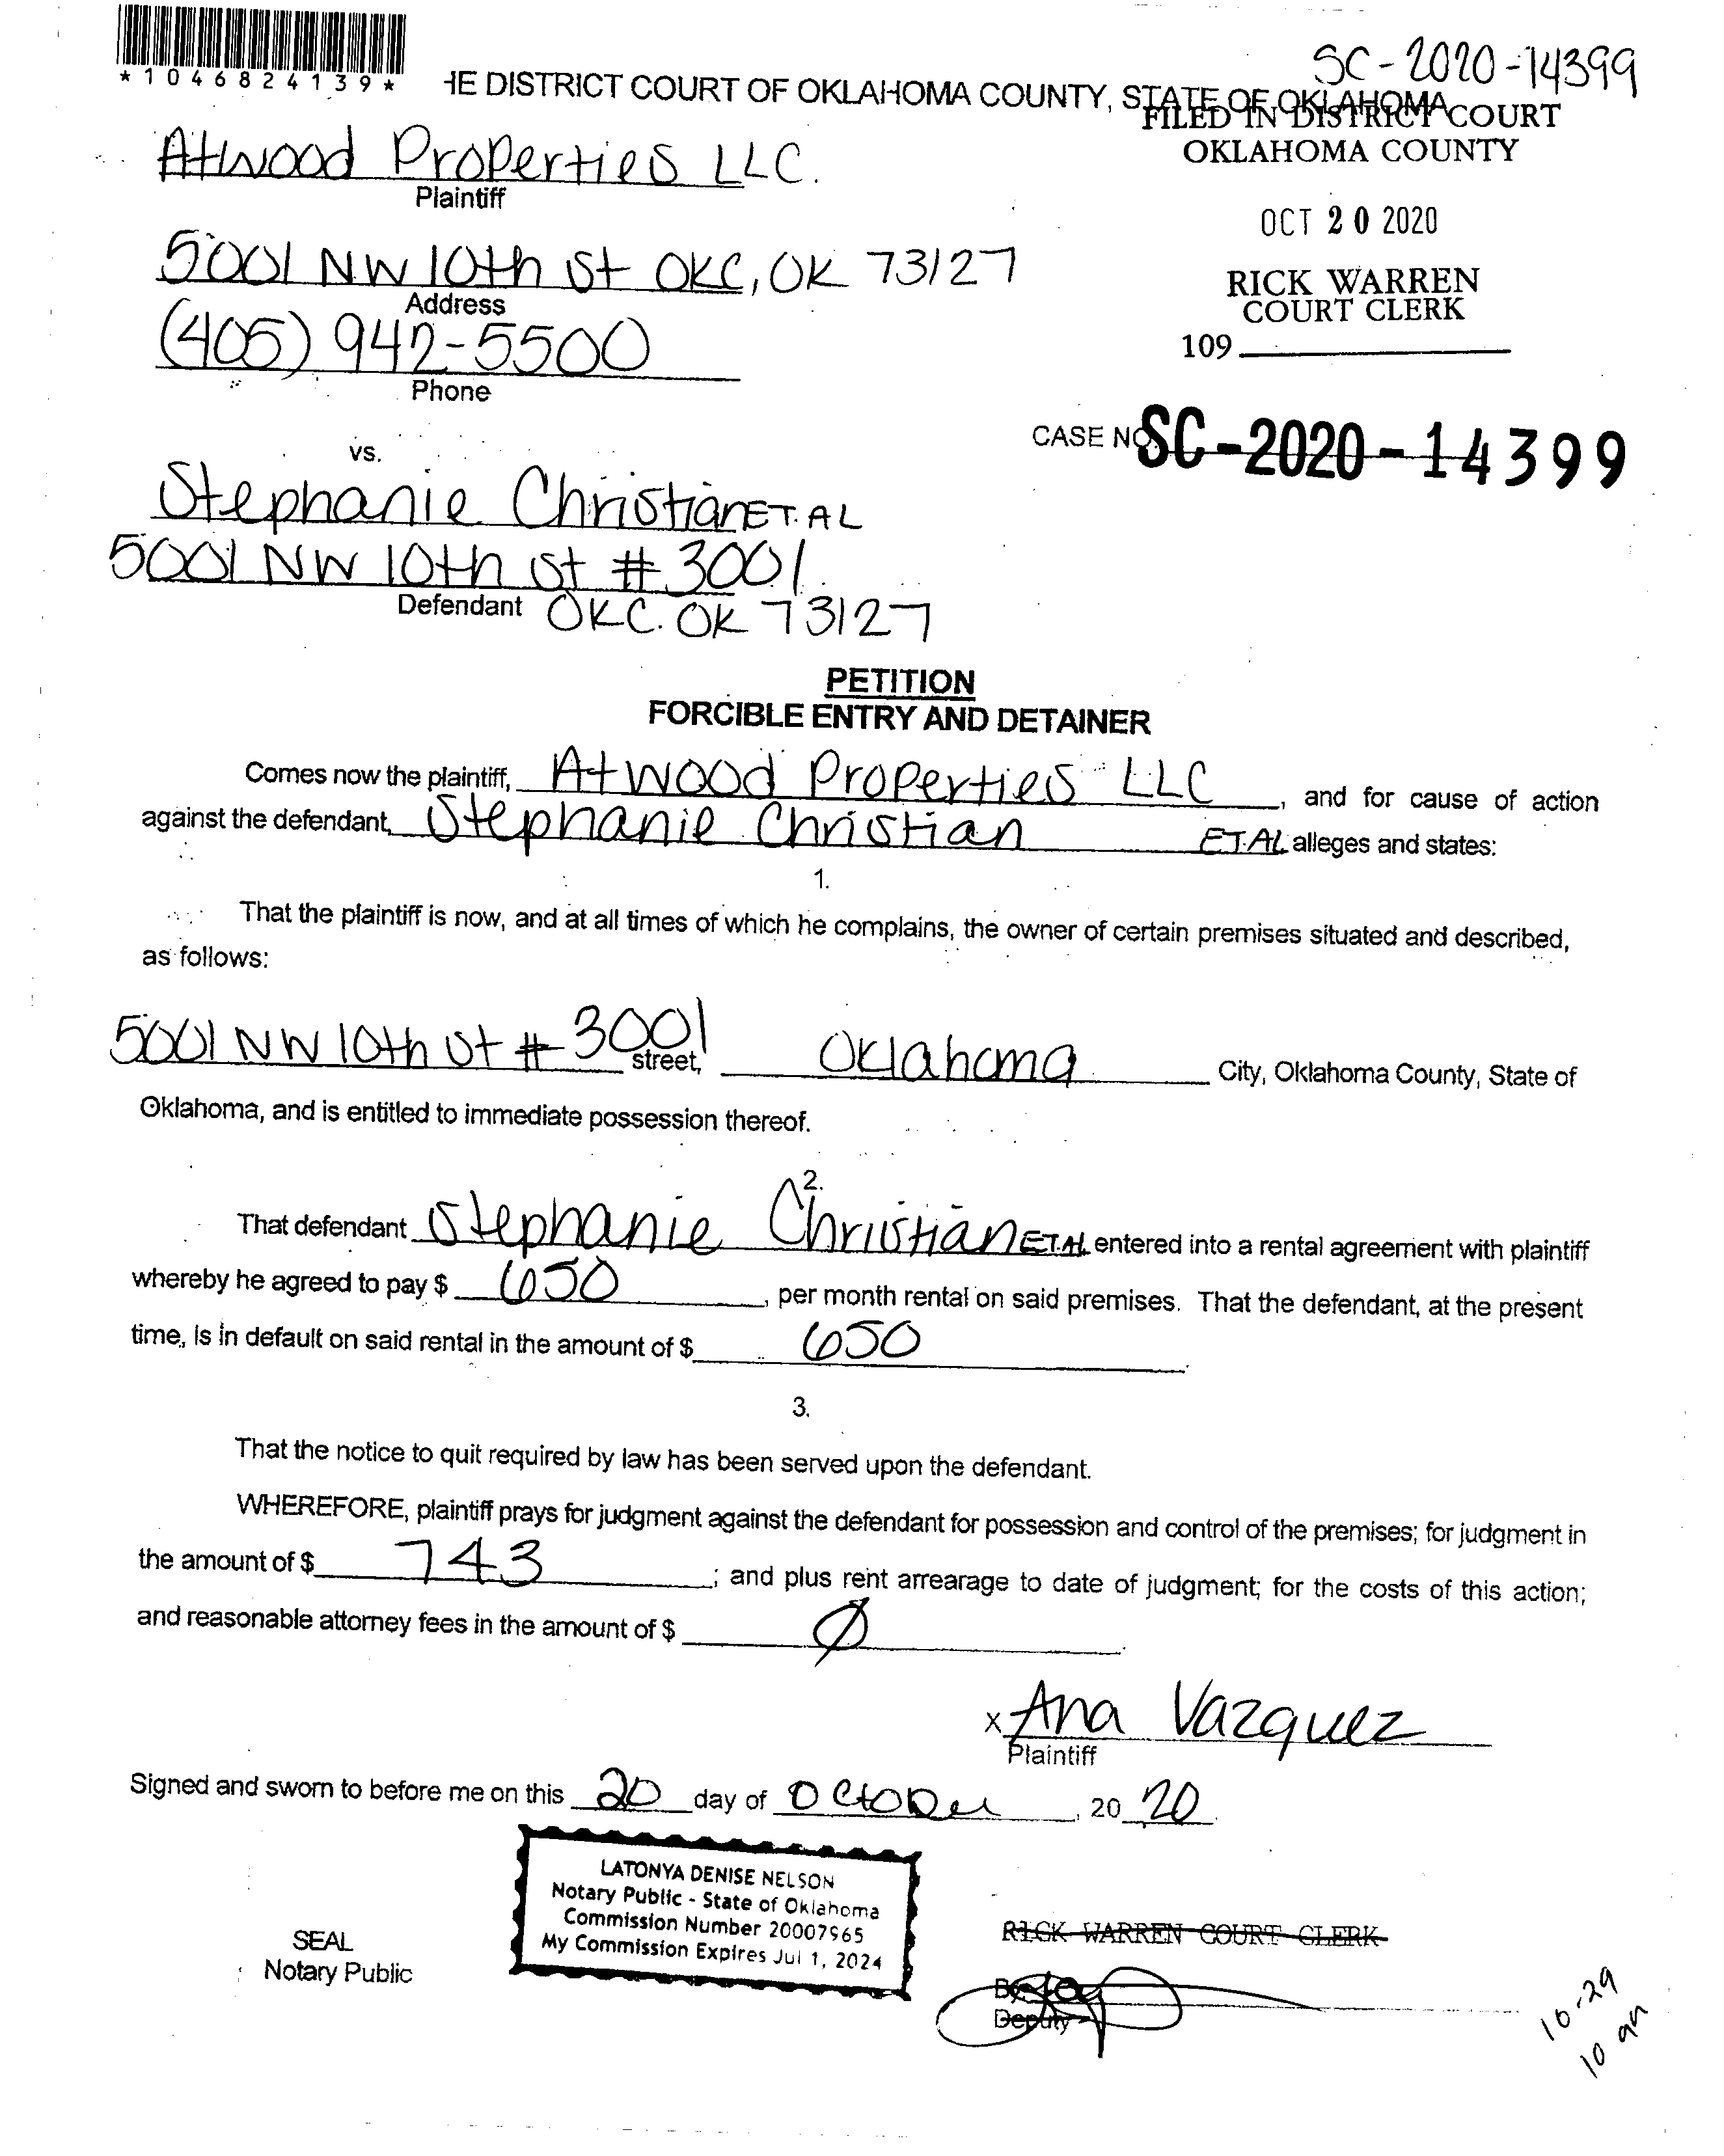 *1046824139*
SC-2020-14399
HE DISTRICT COURT OF OKLAHOMA COUNTY, STATE OF OKLAHOMA
FILED IN DISTRICT COURT
OKLAHOMA COUNTY
Atwood Properties LLC.
Plaintiff
OCT 20 2020
5001 NW 10th St OKC, OK 73127
Address
RICK WARREN
COURT CLERK
(405) 942-5500
Phone
109
vs.
CASE NO. SC-2020-14399
Stephanie Christian ET. AL
5001 NW 10th St # 3001
Defendant OKC. OK 73127
PETITION
FORCIBLE ENTRY AND DETAINER
Comes now the plaintiff, Atwood Properties LLC, and for cause of action
against the defendant, Stephanie Christian ET.AL alleges and states:
1.
That the plaintiff is now, and at all times of which he complains, the owner of certain premises situated and described,
as follows:
5001 NW 10th St # 3001 street, Oklahoma City, Oklahoma County, State of
Oklahoma, and is entitled to immediate possession thereof.
2.
That defendant Stephanie Christian ET.AL entered into a rental agreement with plaintiff
whereby he agreed to pay $ 650, per month rental on said premises. That the defendant, at the present
time, is in default on said rental in the amount of $ 650.
3.
That the notice to quit required by law has been served upon the defendant.
WHEREFORE, plaintiff prays for judgment against the defendant for possession and control of the premises; for judgment in
the amount of $ 743; and plus rent arrearage to date of judgment; for the costs of this action;
and reasonable attorney fees in the amount of $ Ø.
x Ana Vazquez
Plaintiff
Signed and sworn to before me on this 20 day of October, 20 20.
LATONYA DENISE NELSON
Notary Public - State of Oklahoma
Commission Number 20007965
My Commission Expires Jul 1, 2024
SEAL
Notary Public
RICK WARREN COURT CLERK
By
Deputy
10-29
10 am